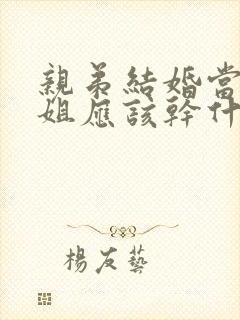 親弟結婚當
姐應該幹什
楊友藝